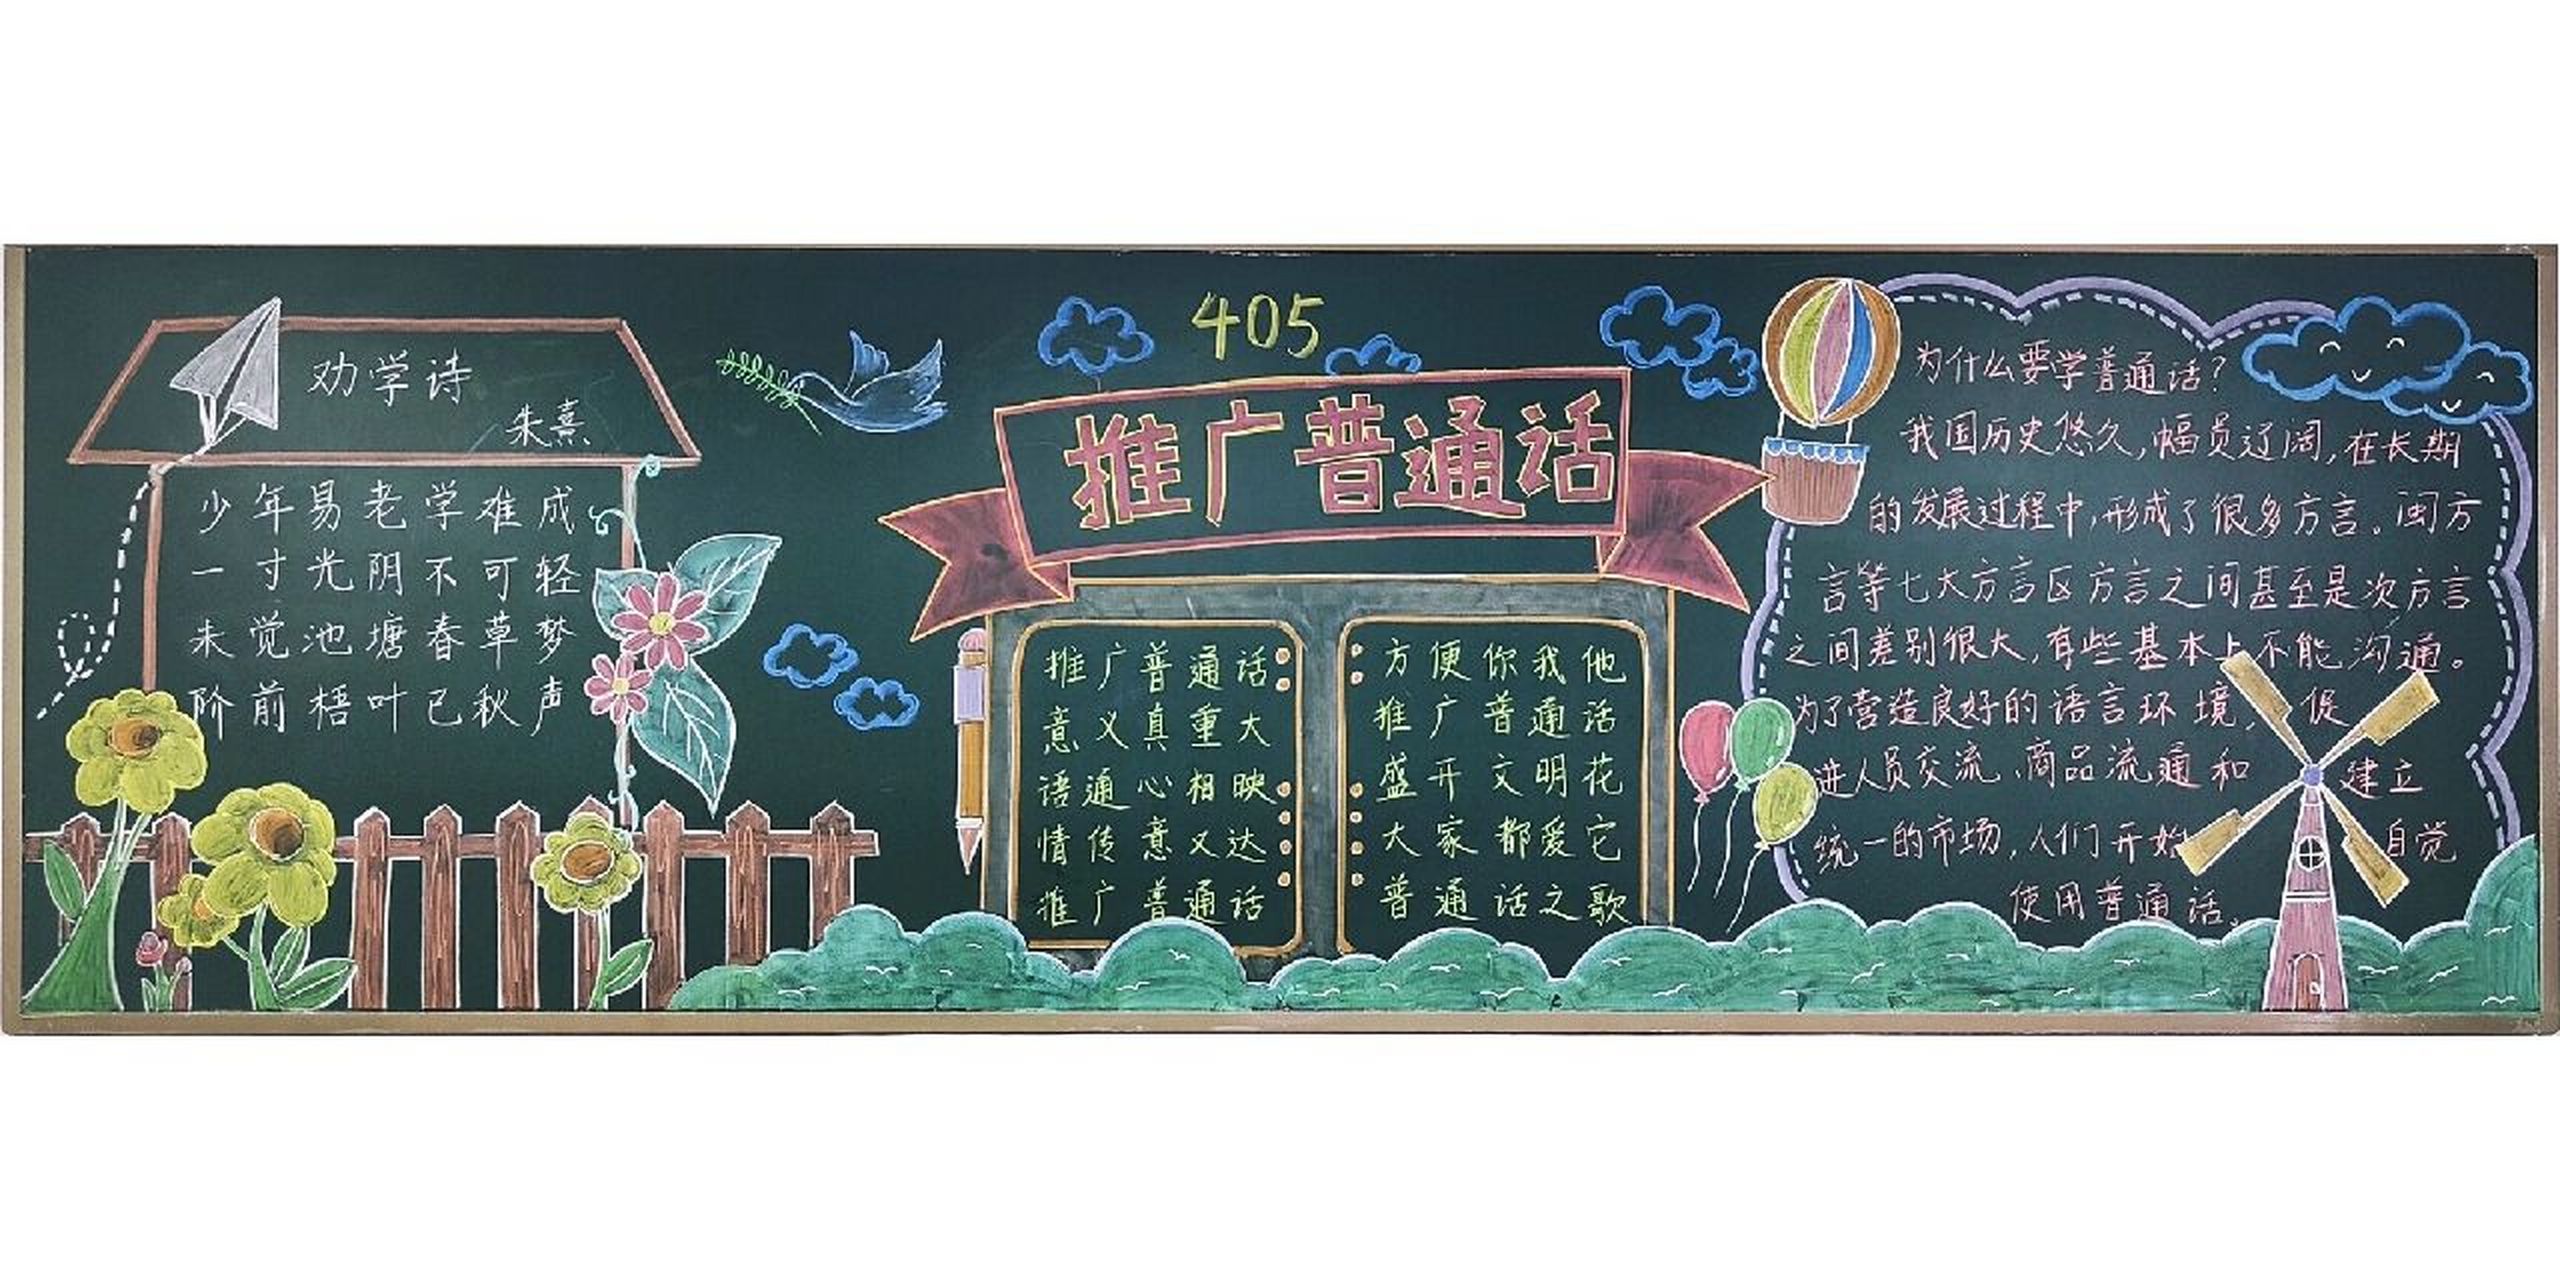 劝学诗
朱熹
少年易老学难成
一寸光阴不可轻
未觉池塘春草梦
阶前梧叶已秋声
405
推广普通话
推广普通话
意义真重大
语通心相映
情传意义达
推广普通话
方便你我他
推广普通话
盛开文明花
大家都爱它
普通话之歌
为什么要学普通话?
我国历史悠久,幅员辽阔,在长期
的发展过程中,形成了很多方言。闽方
言等七大方言区方言之间甚至是次方言
之间差别很大,有些基本上不能沟通。
为了营造良好的语言环境,促
进人员交流、商品流通和建立
统一的市场,人们开始自觉
使用普通话。